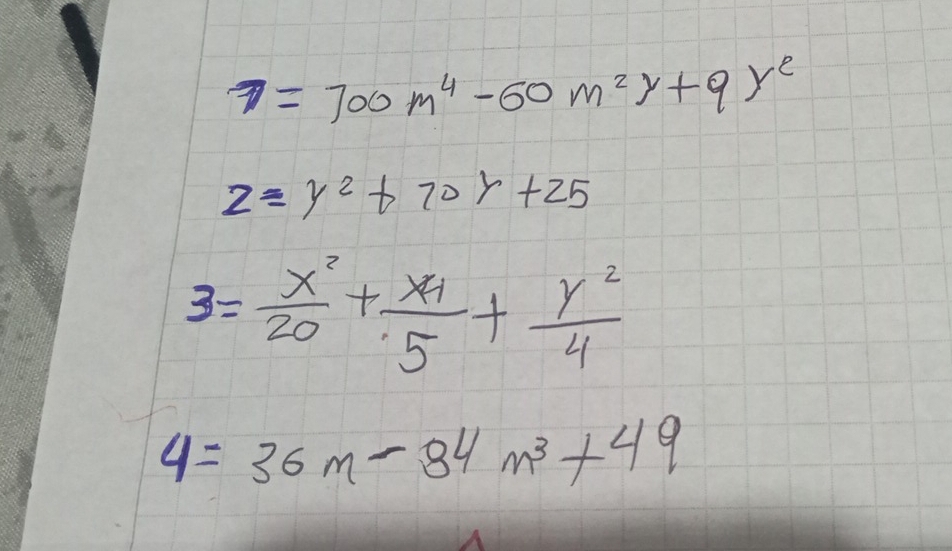 1= 100 m⁴ - 60 m² y + 9 y²
2= y² + 10 y + 25
3= x²/20 + xy/5 + y²/4
4= 36 m - 84 m³ + 49